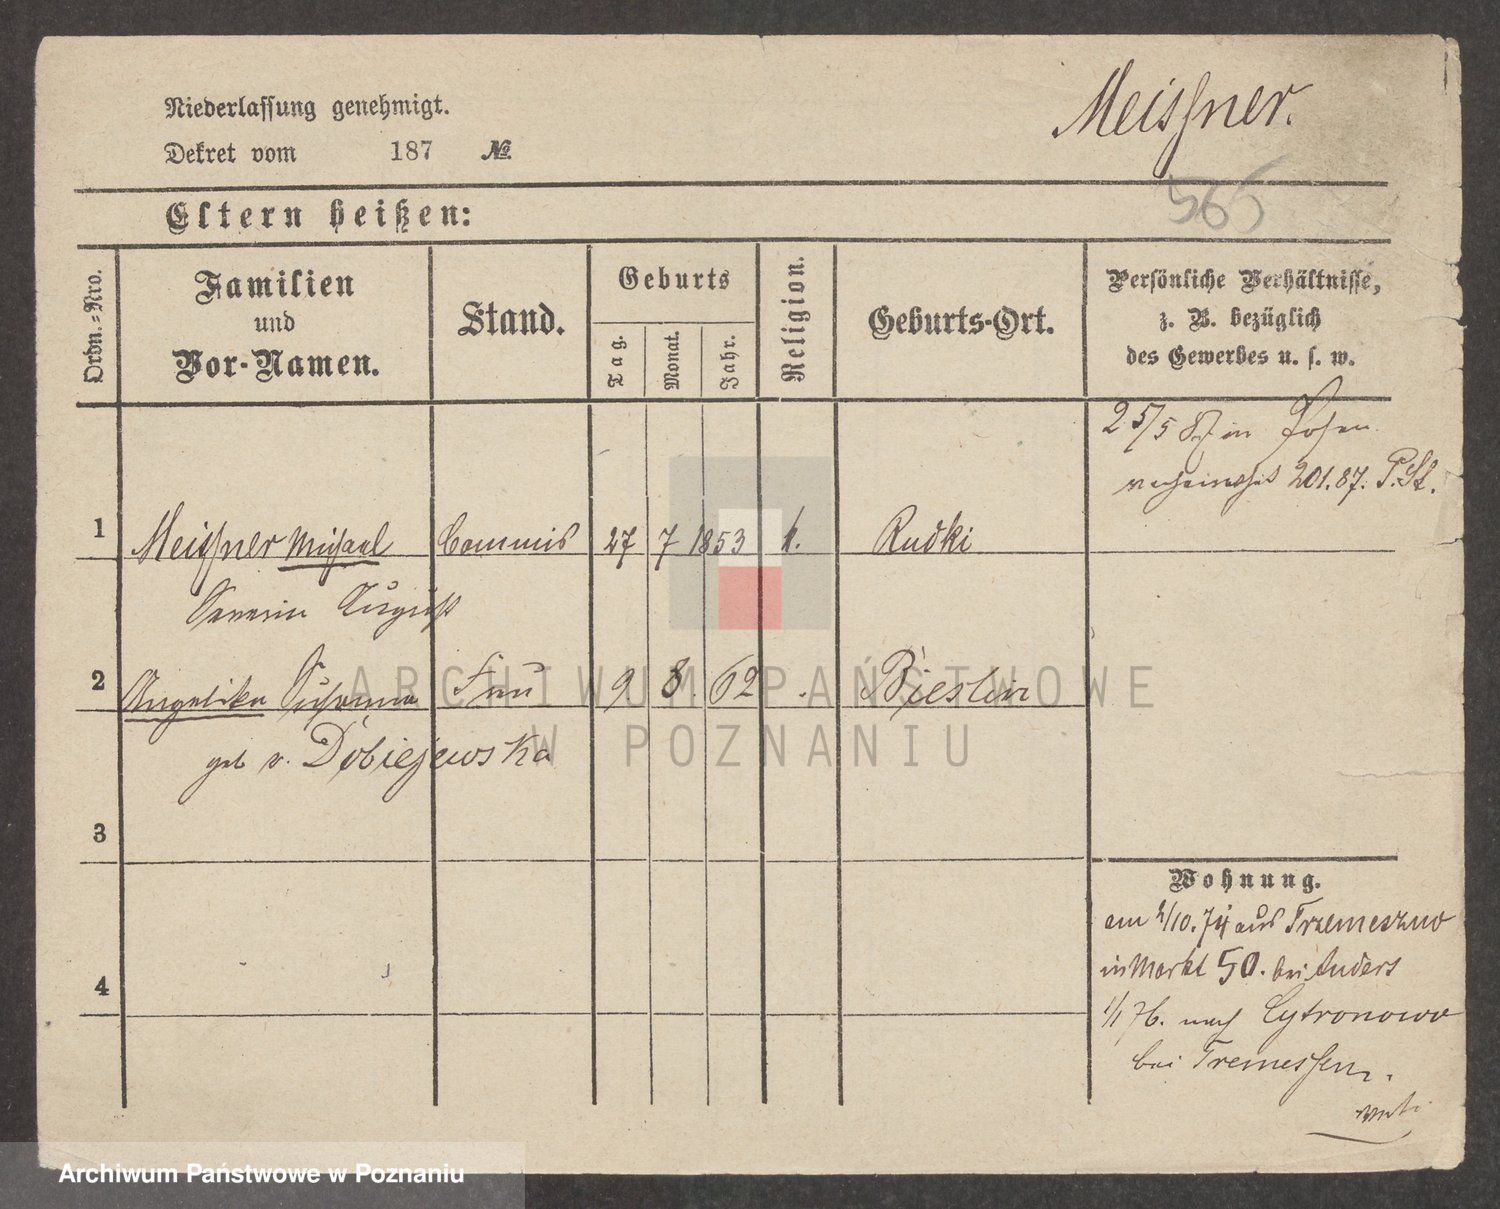 Niederlassung genehmigt.
Meissner.
Dekret vom 187 №
566
Eltern heißen:
Ordn.-Nro.
Familien
und
Vor-Namen.
Stand.
Geburts
Tag.
Monat.
Jahr.
Religion.
Geburts-Ort.
Persönliche Verhältnisse,
z. B. bezüglich
des Gewerbes u. s. w.
25/5 87 in Posen
verheirathet 201.87. P.St.
1 Meissner Michael Commis 27 7 1853 k. Rudki
Severin August
2 Angelika Susanna Frau 9 8. 62 Bieslin
geb v. Dobiejewska
3
4
Wohnung.
am 2/10.74 aus Trzemeszno
in Markt 50. bei Anders
1/1 76. nach Cytronowo
bei Tremessen.
ARCHIWUM PAŃSTWOWE
W POZNANIU
Archiwum Państwowe w Poznaniu